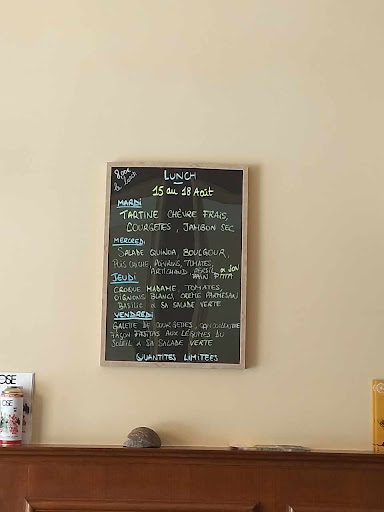 LUNCH
15 au 18 Août
MARDI
TARTINE CHÈVRE FRAIS,
COURGETTES, JAMBON SEC
MERCREDI
SALADE QUINOA, BOULGOUR,
POIS CHICHE, POIVRONS, TOMATES,
ARTICHAUD PERSIL & SON
PAIN PITTA
JEUDI
CROQUE MADAME, TOMATES,
OIGNONS BLANCS, CRÈME PARMESAN
BASILIC & SA SALADE VERTE
VENDREDI
GALETTE DE COURGETTES,
FAÇON FAJITAS AUX LÉGUMES DU
SOLEIL & SA SALADE VERTE
QUANTITÉS LIMITÉES
OSE
OSE